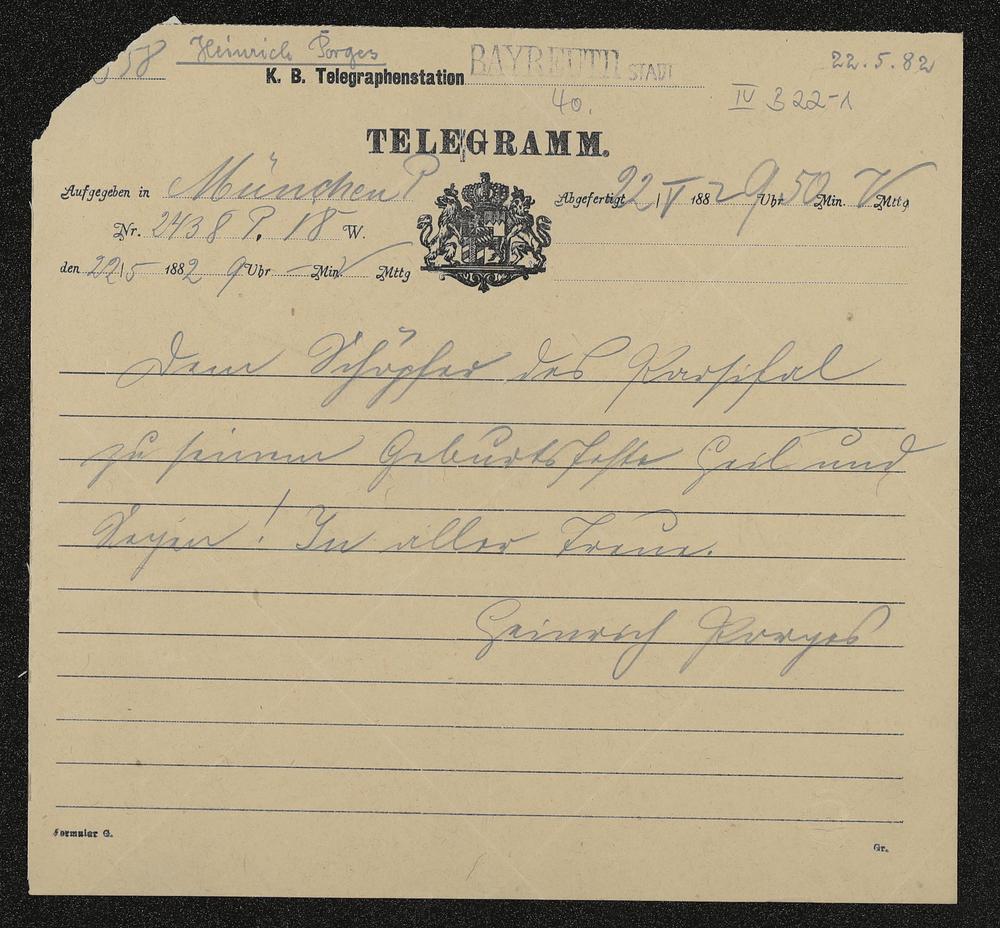 558 Heinrich Porges BAYREUTH STADT 22.5.82
K. B. Telegraphenstation
40. IV B 22-1
TELEGRAMM.
Aufgegeben in München P Abgefertigt 22/V 1882 9 Uhr 50 Min. V Mttg
Nr. 2438 P. 18 W.
den 22/5 1882 9 Uhr — Min. V Mttg
Dem Schöpfer des Parsifal
zu seinem Geburtsfeste Heil und
Segen! In aller Treue.
Heinrich Porges
Formular G.
Gr.